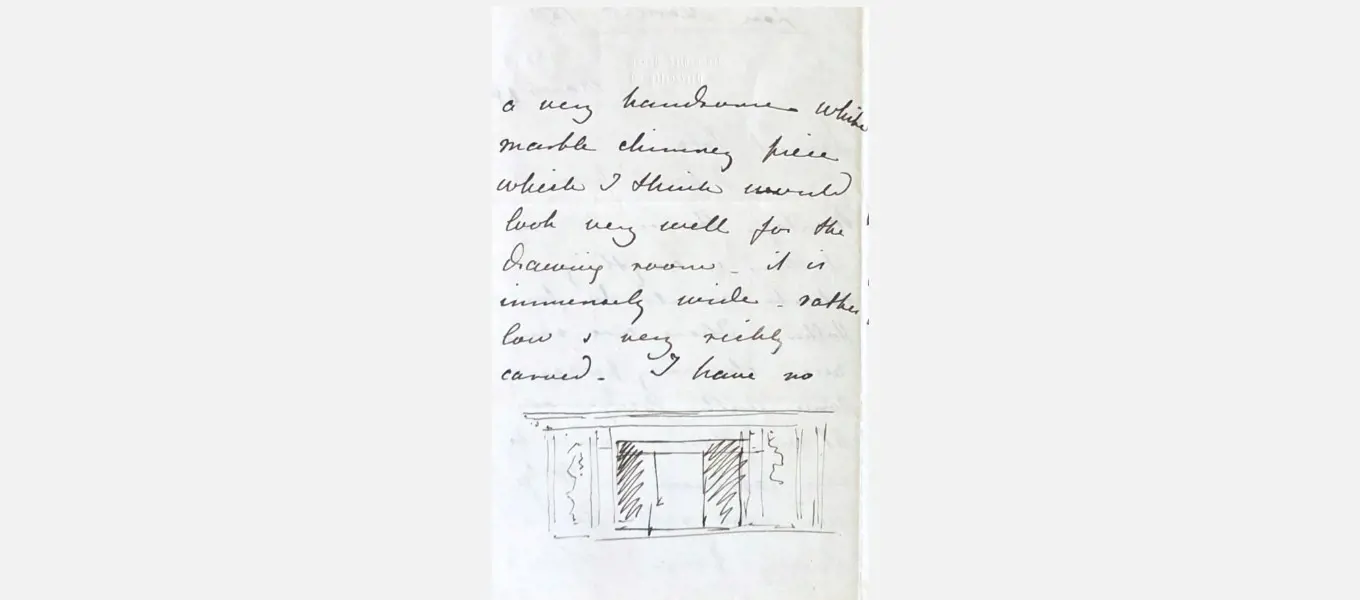 a very handsome white
marble chimney piece
which I think would
look very well for the
drawing room - it is
immensely wide - rather
low & very richly
carved - I have no